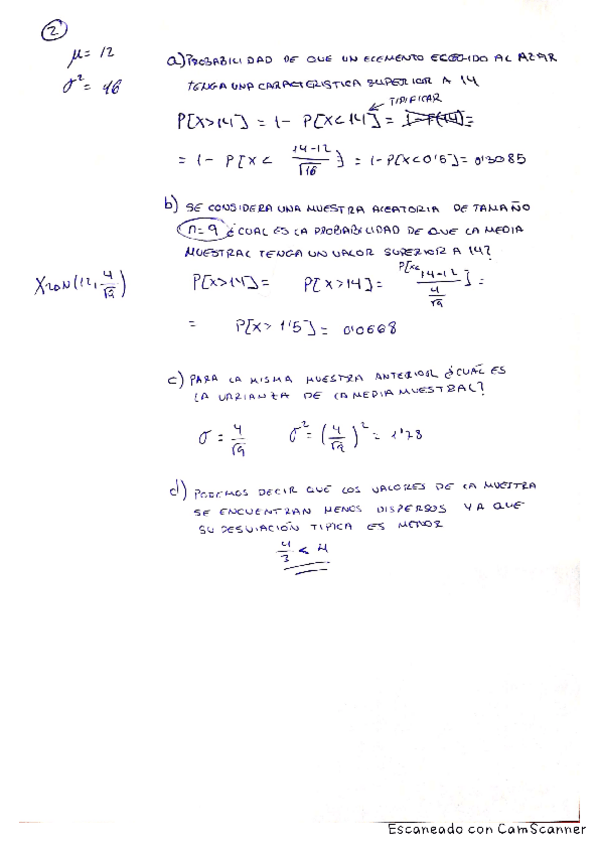 2
μ = 12
σ² = 16
a) PROBABILIDAD DE QUE UN ELEMENTO ESCOGIDO AL AZAR
TENGA UNA CARACTERISTICA SUPERIOR A 14
TIPIFICAR
P[X>14] = 1 - P[X<14] = 1-F(14) =
= 1 - P[X < 14-12/√16] = 1-P[X<0'5] = 0'3085
b) SE CONSIDERA UNA MUESTRA ALEATORIA DE TAMAÑO
n=9 ¿CUAL ES LA PROBABILIDAD DE QUE LA MEDIA
MUESTRAL TENGA UN VALOR SUPERIOR A 14?
X~N(12, 4/√9)
P[X>14] = P[X>14] = P[X< 14-12/(4/√9)] =
= P[X> 1'5] = 0'0668
c) PARA LA MISMA MUESTRA ANTERIOR ¿CUÁL ES
LA VARIANZA DE LA MEDIA MUESTRAL?
σ = 4/√9 σ² = (4/√9)² = 1'78
d) PODEMOS DECIR QUE LOS VALORES DE LA MUESTRA
SE ENCUENTRAN MENOS DISPERSOS YA QUE
SU DESVIACIÓN TIPICA ES MENOR
4/3 < 4
Escaneado con CamScanner